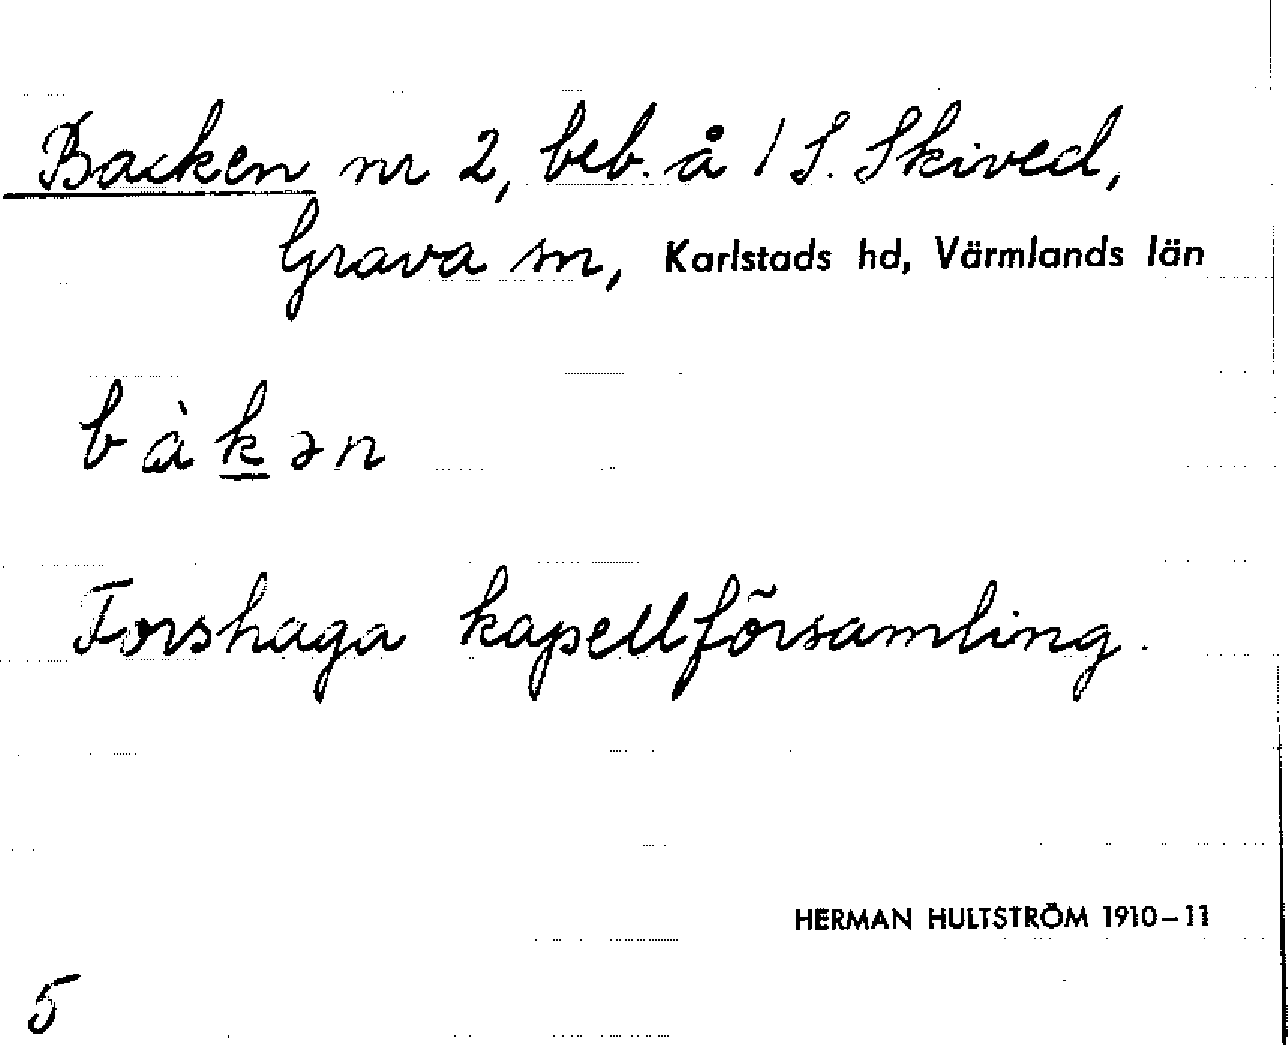 Backen nr 2, beb. å 1 S. Skived,
Grava sn, Karlstads hd, Värmlands län
bàk̲ən
Forshaga kapellförsamling.
HERMAN HULTSTRÖM 1910–11
5